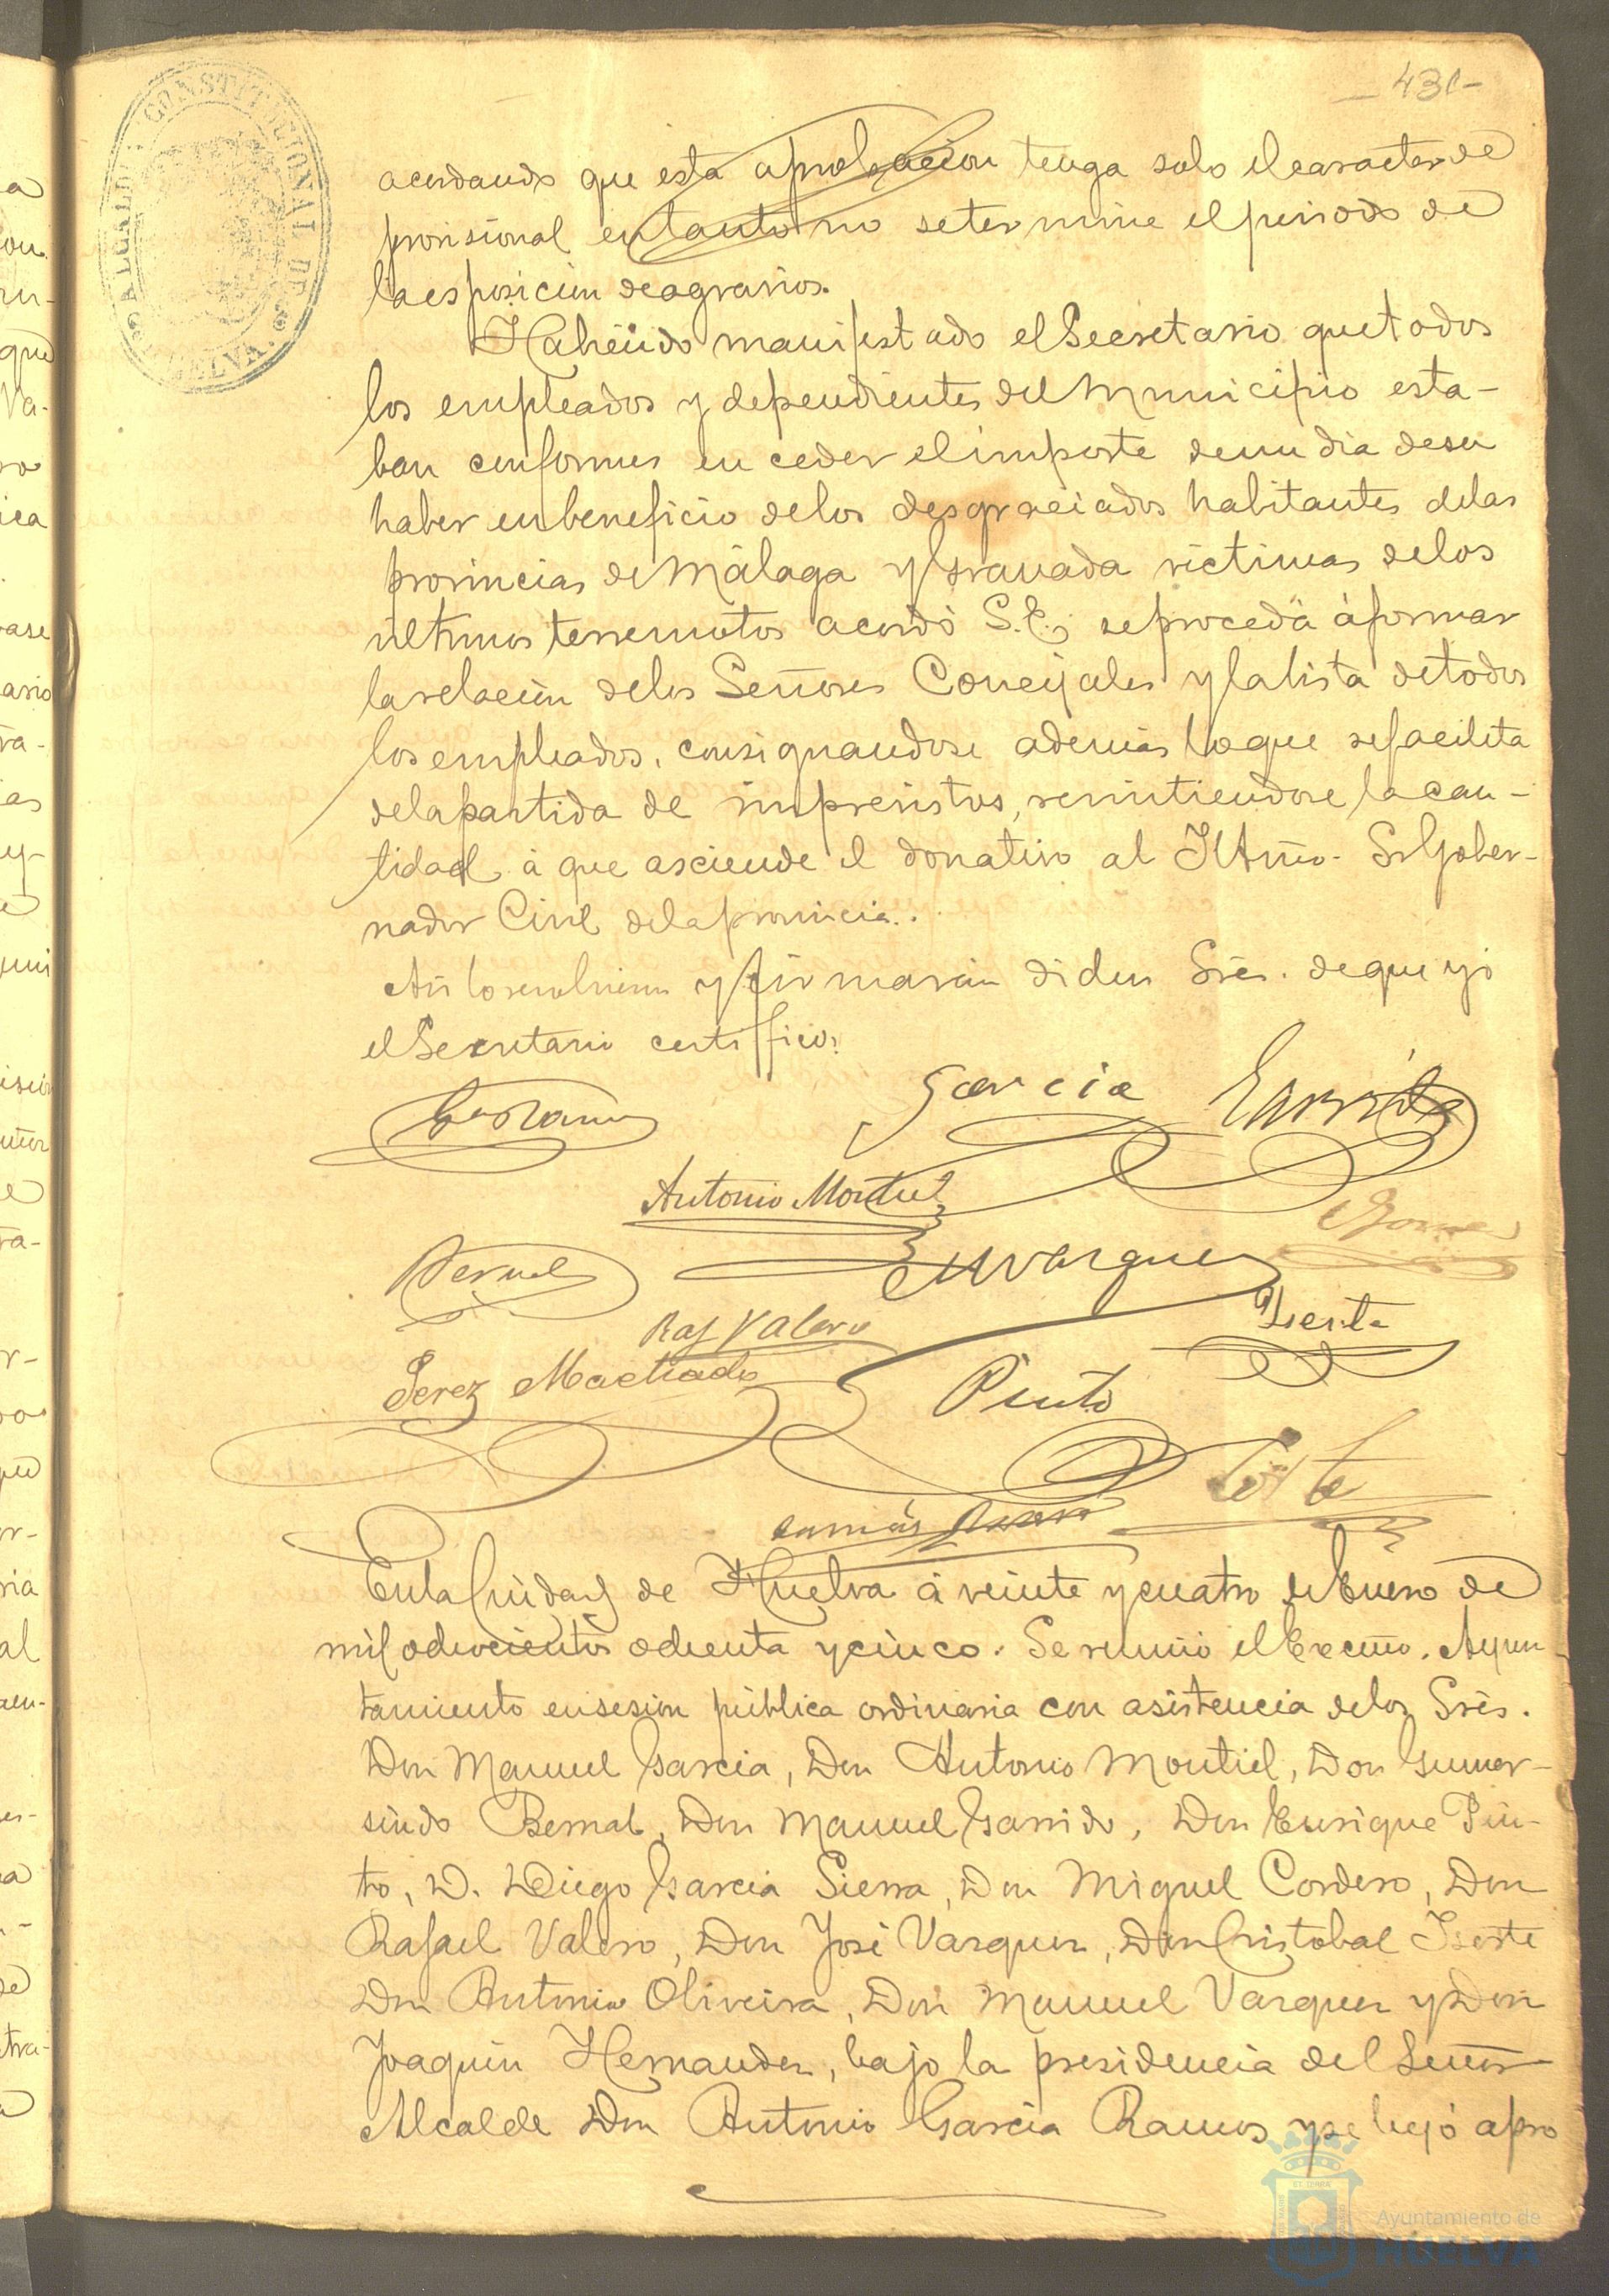 431-
ALCALDIA CONSTITUCIONAL DE HUELVA.
acordando que esta aprobacion tenga solo el caracter de
provisional en tanto no se termine el periodo de
la esposicion de agravios.
Habiendo manifestado el Secretario que todos
los empleados y dependientes del Municipio esta-
ban conformes en ceder el importe de un dia de su
haber en beneficio de los desgraciados habitantes de las
provincias de Málaga y Granada victimas de los
ultimos terremotos acordó S.E. se proceda á formar
la relacion de los Señores Concejales y la lista de todos
los empleados, consignandose ademas lo que se facilita
de la partida de imprevistos, remitiendose la can-
tidad á que asciende el donativo al Iltmo. Sr Gober-
nador Civil de la provincia.
Asi lo resolvieron y firmarán dichos Sres. de que yo
el Secretario certifico.
Ga Ramos
Garcia Garrido
Antonio Montiel
Gomez
Bernal
M Vazquez
Raf Valero
Iserte
Perez Machado
Pinto
En la Ciudad de Huelva á veinte y cuatro de Enero de
mil ochocientos ochenta y cinco. Se reunió el Excmo. Ayun
tamiento en sesion pública ordinaria con asistencia de los Sres.
Don Manuel Garcia, Don Antonio Montiel, Don Gumer-
sindo Bernal, Don Manuel Garrido, Don Enrique Pin-
to, D. Diego Garcia Sierra, Don Miguel Cordero, Don
Rafael Valero, Don José Vazquez, Don Cristobal Iserte
Don Antonio Oliveira, Don Manuel Vazquez y Don
Joaquin Hernandez, bajo la presidencia del Señor
Alcalde Don Antonio Garcia Ramos y se leyó apro
Ayuntamiento de
HUELVA